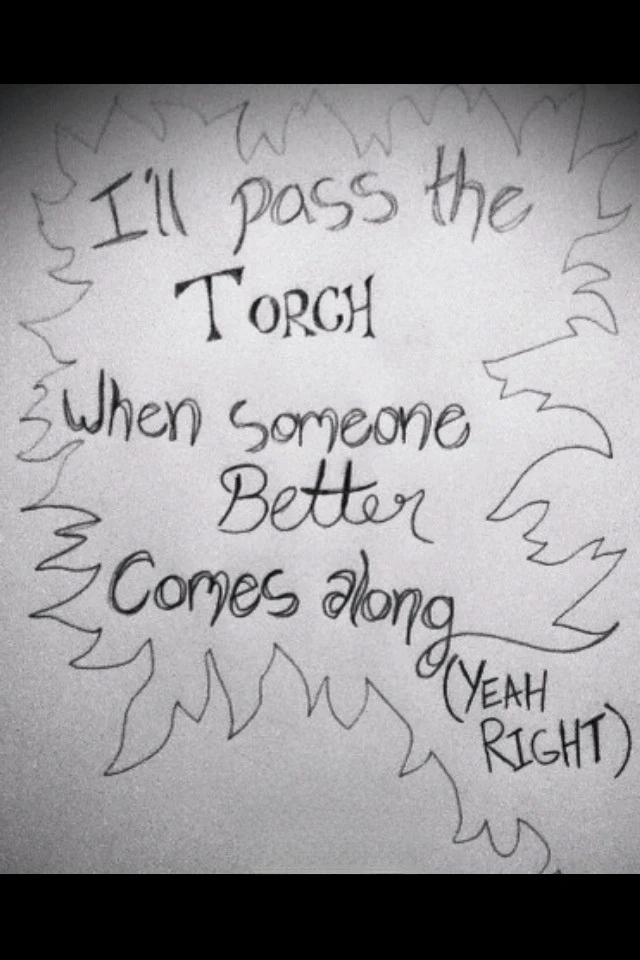 I'll pass the
TORCH
When someone
Better
Comes along
(YEAH
RIGHT)